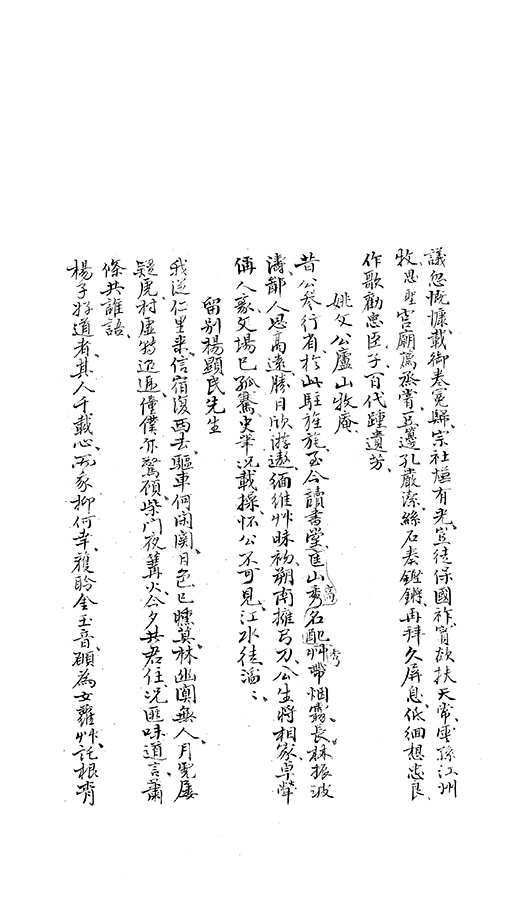 議忽慨慷載御奉冕歸宗社煙有光豈徒保國祚實欲扶天常雲孫江州
牧思聖宮廟爲烝嘗豆籩孔嚴潔絲石奏鏗鏘再拜久屏息低徊想忠良
作歌勸忠臣子百代踵遺芳
姚文公廬山牧庵
昔公參行省於此駐旌旄至今讀書堂匡山秀名配高艸帶烟霧長林振波
濤鄙人思高遠勝日欣游遨緬維艸昧初朔南擁弓刀公生將相家卓犖
稱人豪文場已孤騫史筆況載操懷公不可見江水徒滔滔
留別楊顯民先生
我從仁里來信宿復西去驅車何閑關日色已曛莫林幽闃無人月荒屢
疑虎村虛特迢遞僮僕亦驚顧柴門夜篝火今夕共君住況匪味道言蕭
條共誰語
楊子好道者其人千載心而我抑何幸獲聆金玉音願為女蘿艸託根青